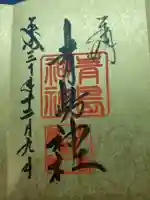 奉拝
青島神社
青島
神社
平成三十年十二月九日